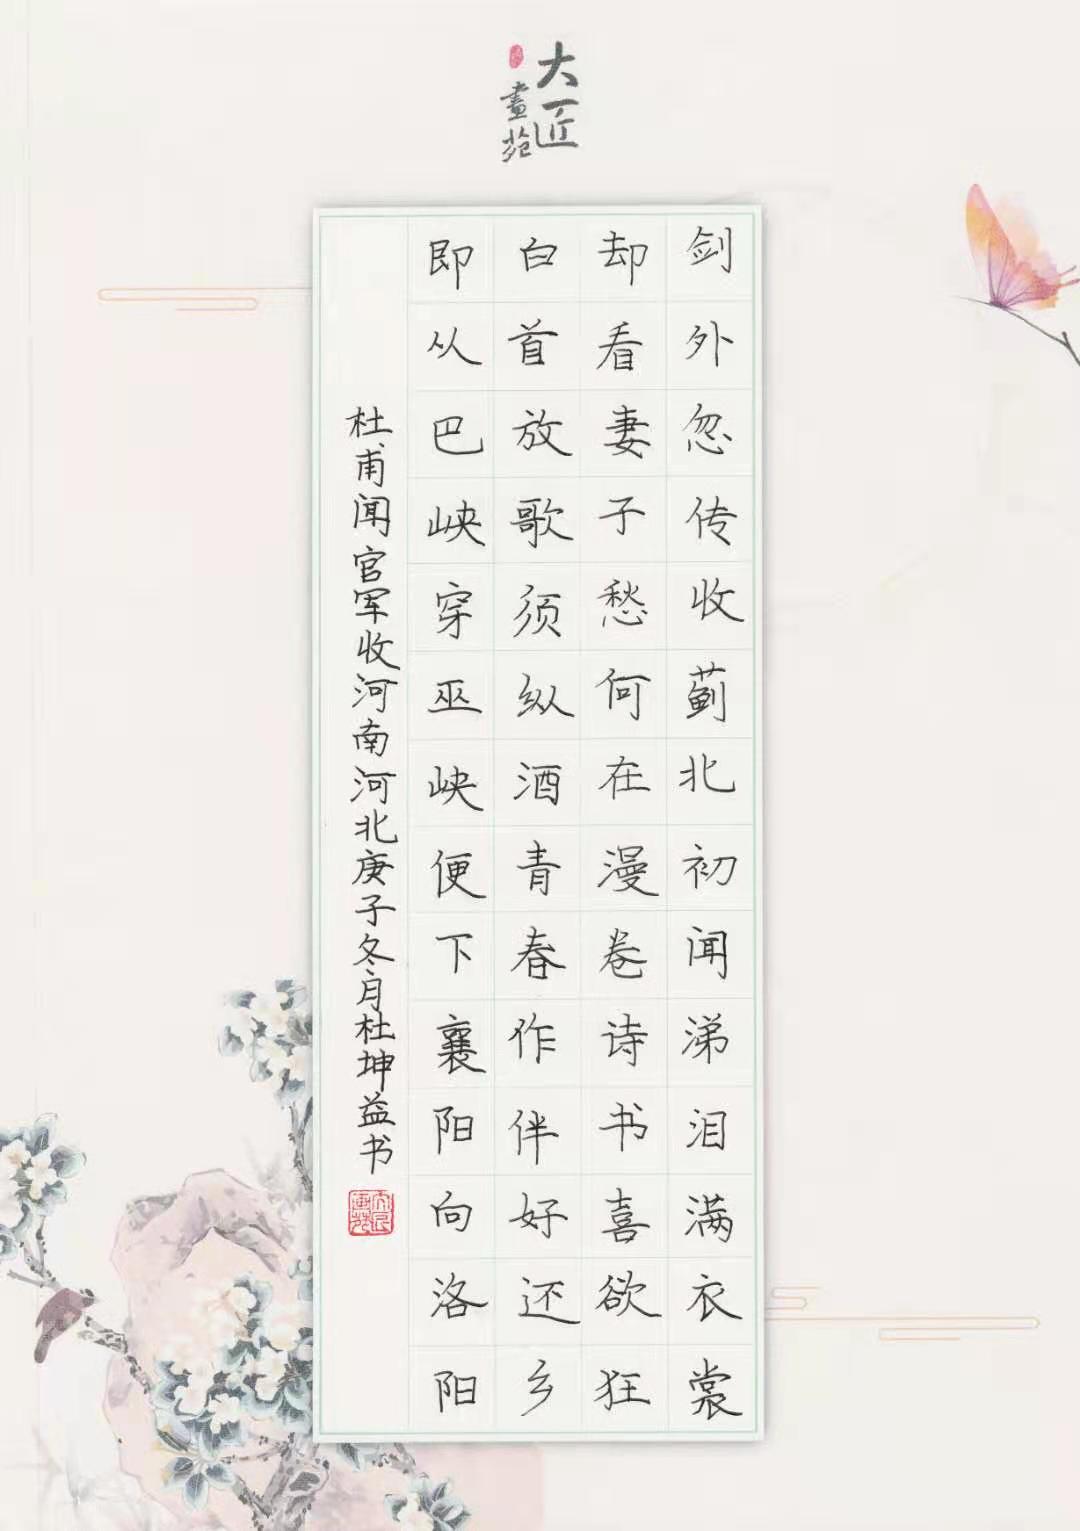 大匠
畫苑
剑外忽传收蓟北初闻涕泪满衣裳
却看妻子愁何在漫卷诗书喜欲狂
白首放歌须纵酒青春作伴好还乡
即从巴峡穿巫峡便下襄阳向洛阳
杜甫闻官军收河南河北庚子冬月杜坤益书